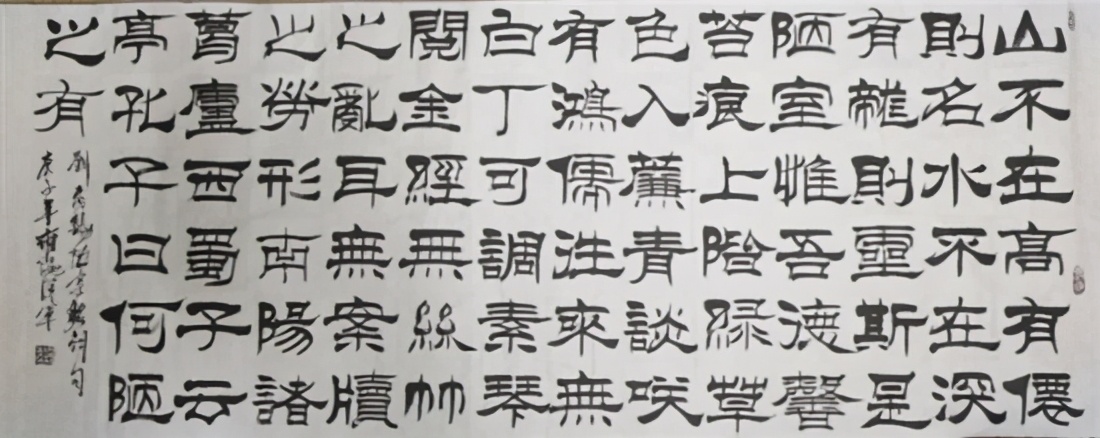 山不在高有僊
則名水不在深
有龍則靈斯是
陋室惟吾德馨
苔痕上階緑草
色入簾青談咲
有鴻儒往來無
白丁可調素琴
閱金經無絲竹
之亂耳無案牘
之勞形南陽諸
葛廬西蜀子云
亭孔子曰何陋
之有
劉禹錫陋室銘詞句
庚子年